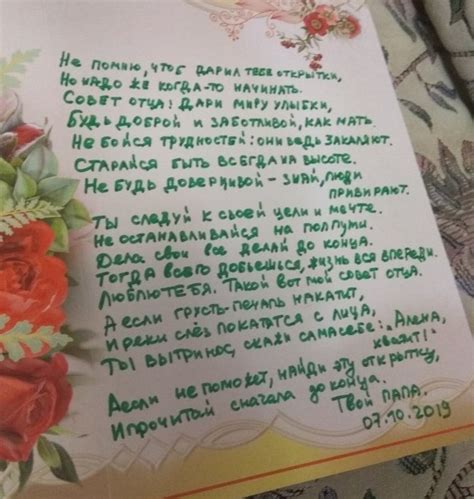 Не помню, чтоб дарил тебе открытки,
Но надо же когда-то начинать.
Совет отца: дари миру улыбки,
Будь доброй и заботливой, как мать.
Не бойся трудностей: они ведь закаляют.
Старайся быть всегда на высоте.
Не будь доверчивой - знай, люди
привирают.
Ты следуй к своей цели и мечте.
Не останавливайся на полпути.
Дела свои все делай до конца.
Тогда всего добьешься, жизнь вся впереди.
Люблю тебя. Такой вот мой совет отца.
А если грусть-печаль накатит,
И реки слёз покатятся с лица,
Ты вытри нос, скажи сама себе: "Алена,
хватит!"
А если не поможет, найди эту открытку,
И прочитай сначала до конца.
Твой папа.
07.10.2019